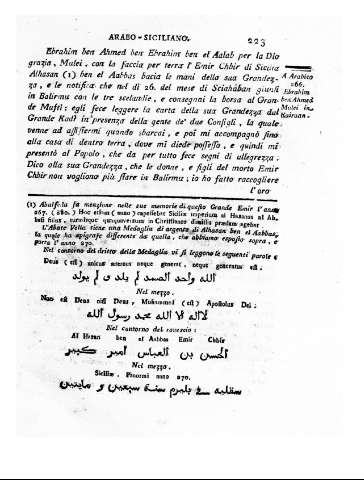 ARABO-SICILIANO.
223
Ebrahim ben Ahmed ben Ebrahim ben el Aalab per la Dio
grazia, Mulei, con la faccia per terra l'Emir Chbir di Sicilia
Alhasan (1) ben el Aabbas bacia le mani della sua Grandez-
za, e le notifica che nel dì 26. del mese di Sciahaban giunsi
in Balirmu con tre scelantie, e consegnai la borsa al Gran-
de Mufti: egli fece leggere la carta della sua Grandezza dal
Grande Kadi in presenza della gente de' due Consigli, la quale
venne ad assistermi quando sbarcai, e poi mi accompagnò fino
alla casa di dentro terra, dove mi diede possesso, e quindi mi
presentò al Popolo, che da per tutto fece segni di allegrezza.
Dico alla sua Grandezza, che le donne, e figli del morto Emir
Chbir non vogliono più stare in Balirmu; io ho fatto raccogliere
l'oro
A Arabico
266.
Ebrahim
ben Ahmed
Mulei in
Kairuan.
(1) Abulfeda fa menzione nelle sue memorie di questo Grande Emir l'anno
267. (880.) Hoc etiam (anno) capessebat Siciliæ imperium al Hasanus al Ab-
basi filius, turmisque quaquaversum in Christianos dimissis prædam agebat.
L'Abate Vella tiene una Medaglia di argento di Alhasan ben el Aabbas,
la quale ha epigrafe differente da quella, che abbiamo esposto sopra, e
porta l'anno 270.
Nel contorno del dritto della Medaglia vi si leggono le seguenti parole:
Deus (est) unicus æternus neque generat, neque generatus est.
الله واحد الصمد لم يلد و لم يولد
Nel mezzo.
Non est Deus nisi Deus, Muhammed (est) Apostolus Dei:
لااله لا الله محمد رسول الله
Nel contorno del rovescio:
Al Hasan ben al Aabbas Emir Chbir
الحسن بن العباس امير كبير
Nel mezzo.
Siciliæ. Panormi anno 270.
سقليه في بلرم سنة سبعين و مايتين